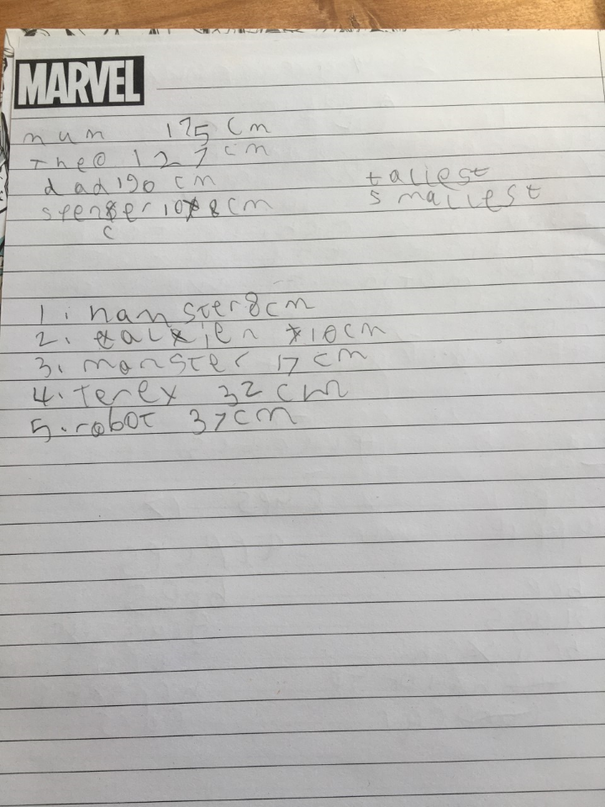 MARVEL
mum 175 cm
Theo 127 cm
dad 190 cm
tallest
spenser 108 cm
smallest
c
1. hamster 8cm
2. alien 10cm
3. monster 17 cm
4. terex 32 cm
5. robot 37cm